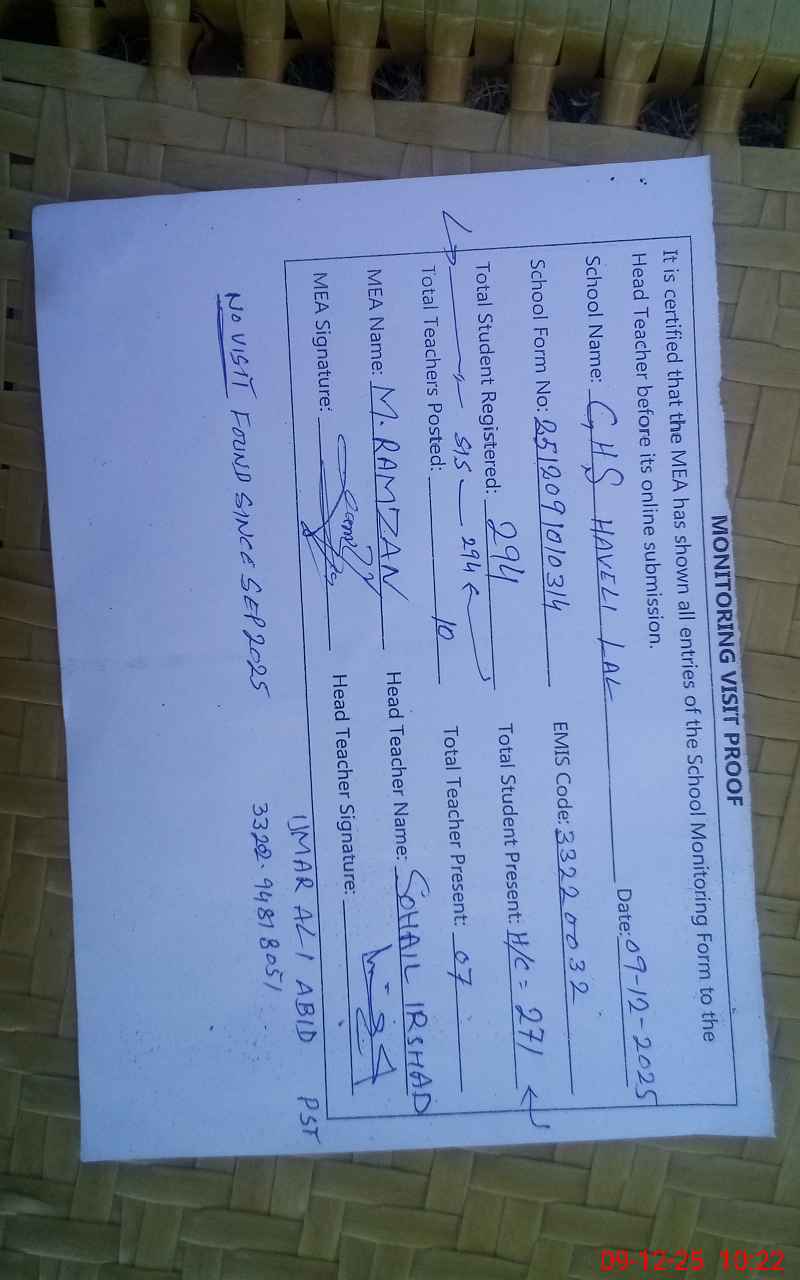 MONITORING VISIT PROOF
It is certified that the MEA has shown all entries of the School Monitoring Form to the
Head Teacher before its online submission.
School Name: GHS HAVELI LAL Date: 09-12-2025
School Form No: 2512091010314 EMIS Code: 33220032
Total Student Registered: 294 Total Student Present: H/C = 271
SIS - 294
Total Teachers Posted: 10 Total Teacher Present: 07
MEA Name: M. RAMZAN Head Teacher Name: SOHAIL IRSHAD
MEA Signature: Head Teacher Signature:
UMAR ALI ABID PST
NO VISIT FOUND SINCE SEP 2025 3320.9481805/
09-12-25 10:22